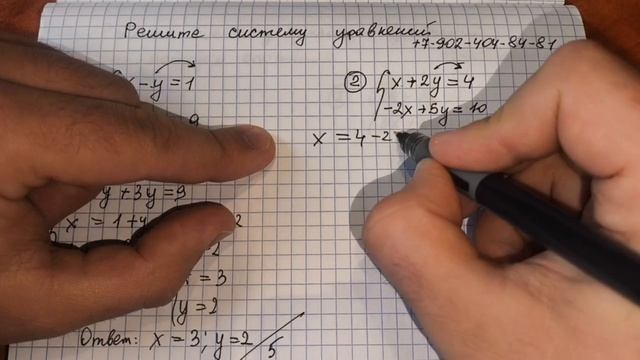 Решите систему уравнений
+7-902-404-84-81
x-y=1
9
y+3y=9
x = 1+y
2
2
= 3
y=2
Ответ: x=3; y=2
5
② x+2y=4
-2x+5y=10
x = 4-2